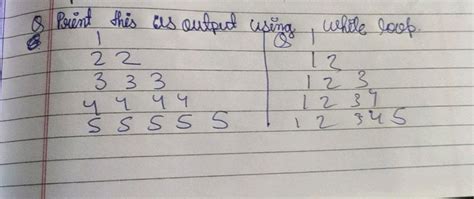 Q Print this as output using while loop.
1
2 2
3 3 3
4 4 4 4
5 5 5 5 5
Q 1
1 2
1 2 3
1 2 3 4
1 2 3 4 5